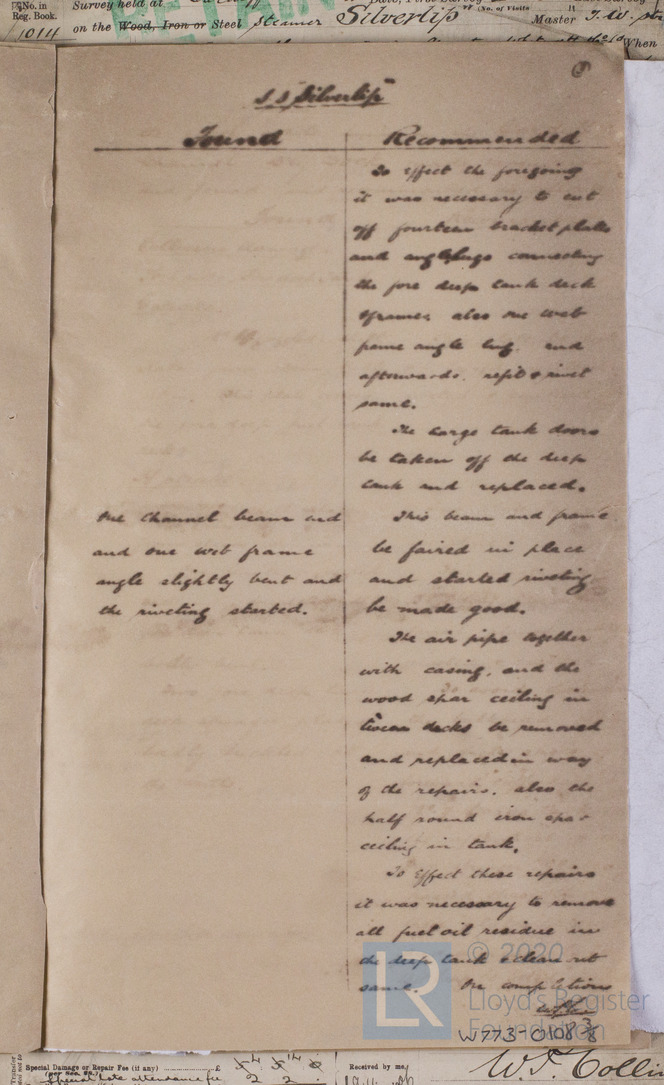 No. in
Reg. Book.
1014
Survey held at
on the Wood, Iron or Steel Steamer "Silverlip"
(No. of Visits
Master J. W.
When
3
S.S. "Silverlip"
Found
Recommended
To effect the foregoing
it was necessary to cut
off fourteen bracket plates
and angle lugs connecting
the fore deep tank deck
& frames, also one web
frame angle lug, and
afterwards, refit & rivet
same.
The large tank doors
be taken off the deep
tank and replaced.
One channel beam and
and one web frame
angle slightly bent and
the riveting started.
This beam and frame
be faired in place
and started riveting
be made good.
The air pipe together
with casing, and the
wood spar ceiling in
'tween decks be removed
and replaced in way
of the repairs, also the
half round iron spar
ceiling in tank.
To effect these repairs
it was necessary to remove
all fuel oil residue in
the deep tank & clean out
same. On completion
LR
© 2020
Lloyd's Register
Foundation
W773-0108 3/8
Special Damage or Repair Fee (if any) £
(per Sec. 28.)
Special late attendance fee
Received by me,
W. T. Colli